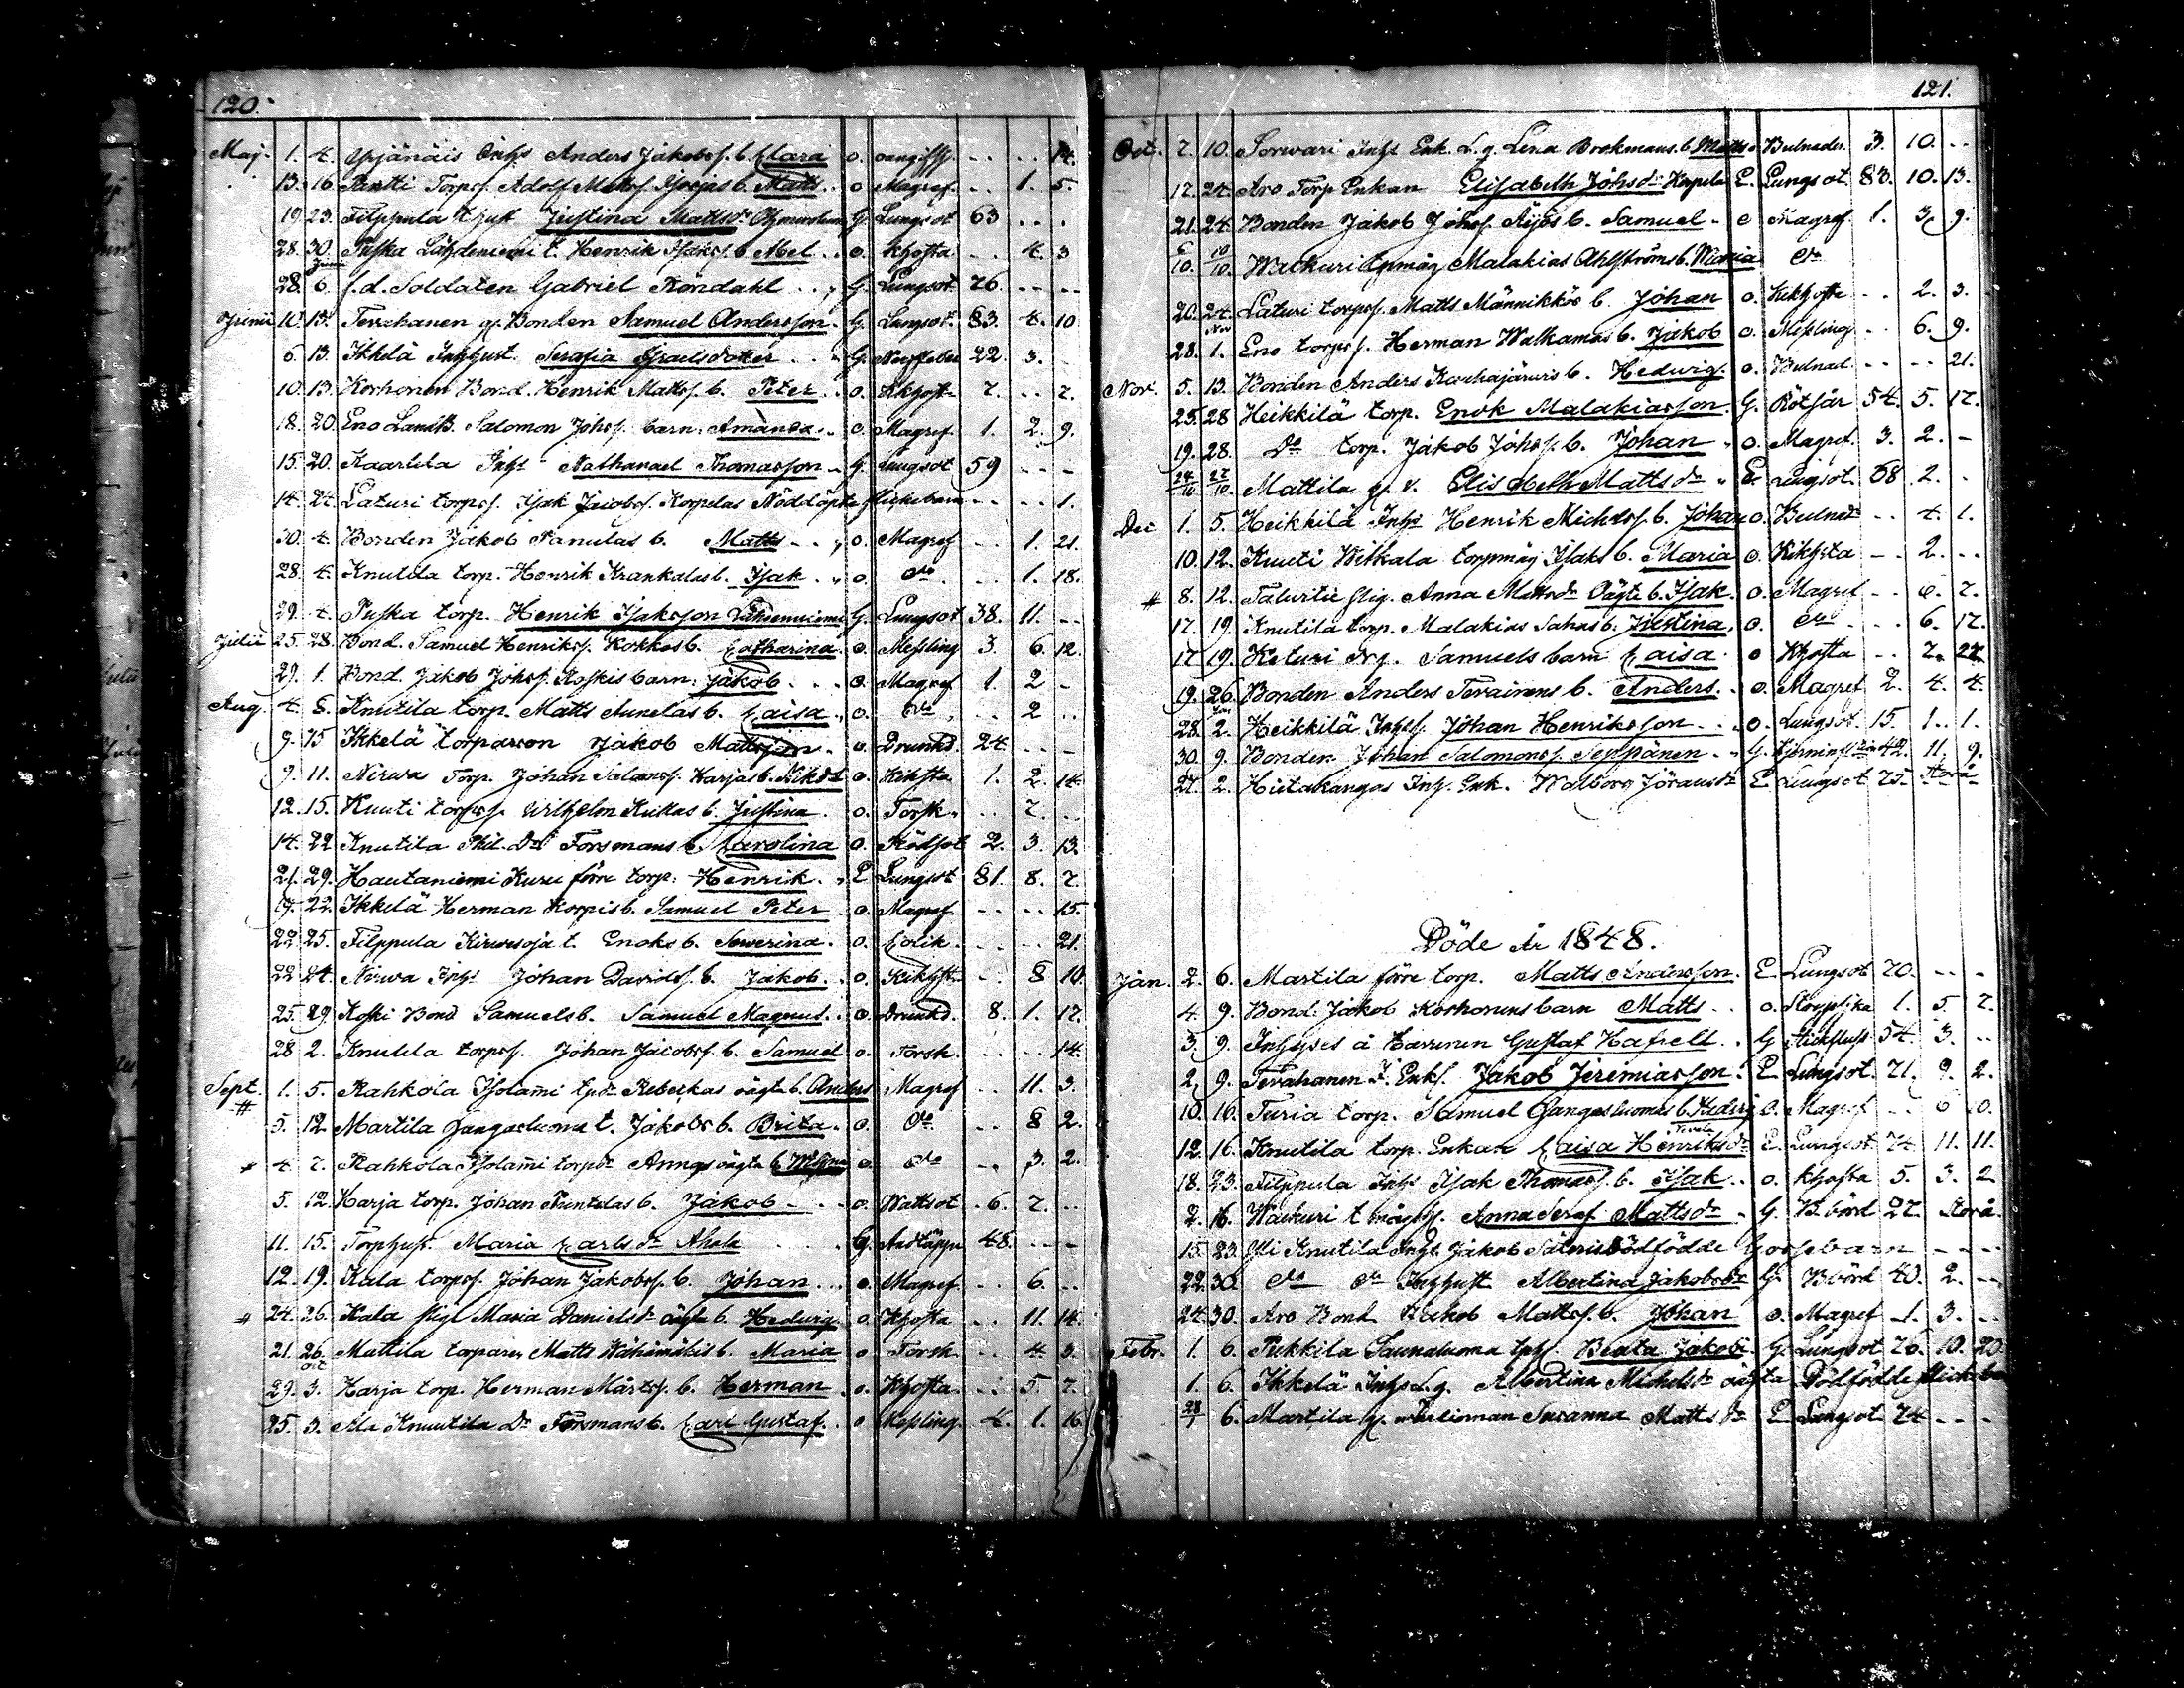 120.
Maj. 1. 4. Yrjänäis Inhs Anders Jakobss. b. Clara o. oangifs. - - - 14.
13. 16. Pentti Torps. Adolf Matts. b. Matts o. Magref. - - 1. 5.
19. 23. Filppula Justina Mattsdr G. Lungsot 63 - - -
28. 30. Puska Lähdeniemi t. Henrik Isaks. b. Abel o. Khosta - - 4. 3
28. 6. f.d. Soldaten Gabriel Röndahl G. Lungsot 76 - - - -
Junii 10. 13. Tervahanen g. Bonden Samuel Andersson G. Lungsot 83. 4. 10
6. 13. Ikkelä Inhhust. Serafia Israelsdotter G. Nerffeber 22. 3.
10. 13. Korhonen Bond. Henrik Matts. b. Peter o. Khosta 7. - - 7.
18. 20. Eno Salomon Johss. barn Amanda o. Magref. 1. 2. 9.
15. 20. Kaartila Inhs Nathanael Thomasson G. Lungsot 59 - - -
14. 24. Laturi torps. Isak Jacobs. Korpelas Nöddöpte flickebarn - - - 1.
30. 4. Bonden Jakob Panulas b. Matts o. Magref - - 1. 21.
28. 4. Knutila torp. Henrik Krankalas b. Isak o. do - - 1. 18.
29. 4. Puska torp. Henrik Isaksson Lähdeniemi G. Lungsot 38. 11. - -
Julii 25. 28. Bond. Samuel Henrikss. Kokkos b. Catharina o. Messling 3. 6. 12.
29. 1. Bond. Jakob Johss. Koskis barn Jakob o. Magref 1. 2 -
Aug. 4. 8. Knutila torp. Matts b. Caisa o. do - - 2 - -
9. 15 Ikkelä torparson Jakob Mattsson o. Drunkd. 24 - - -
9. 11. Nirwa Torp. Johan Salomons. Harjas b. o. Kikhsta 1. 2. 14.
12. 15. Knuti torps. Wilhelm b. Justina o. Torsk - - 7. - -
14. 22. Knutila Forsmans b. Carolina o. Rödsot 2. 3. 13.
21. 29. Hautaniemi Kuru förre torp. Henrik E Lungsot 81. 8. 7.
17. 22. Ikkelä Herman Korpis b. Samuel Peter o. Magref - - - - 15.
22. 25. Filppula t. Enoks b. Sewerina o. Colik - - - - 21.
22 24. Nirwa Inhs Johan Davids. b. Jakob o. Kikhst - - 8 10
25. 29. Koski Bond Samuels b. Samuel Magnus o. Drunkd. 8. 1. 17.
28 2. Knutila torps. Johan Jacobs. b. Samuel o. Torsk - - - - 14.
Sept. 1. 5. Rahkola Isolami Rebeckas oägta b. Anders Magref - - 11. 3.
5. 12. Martila Gangasluoma t. Jakobs b. Brita o. do - - 8 2.
4. 7. Rahkola Isolami Annas oägta b. o. do - - 3. 2.
5. 12. Harja torp. Johan b. Jakob o. Wattsot - 6. 7. - -
11. 15. Torphust. Maria Carlsdr Ahola G. Andtäppa 48. - - -
12. 19. Kala torps. Johan Jakobss. b. Johan o. Magref - - 6. - -
24. 26. Kala Pigl Maria Danielsdr oägta b. Hedwig o. Khosta - - 11. 14.
21. 26. Mattila torparen Matts Wähämäkis b. Maria o Torsk - - 4. 3.
29. 3. Harja torp. Herman Mårts. b. Herman o. Khosta - - 5. 7.
25. 3. Ala Knuutila Forsmans b. Carl Gustaf o Messling 4. 1. 16.
121.
Oct. 7. 10. Sorwari Inhs Enk. Lena Brokmans b. Matts o Bulnader 3. 10. - -
17. 24. Aro Torp Enkan Elisabeth Johsdr Korpela E. Lungsot 83. 10. 13.
21. 24. Bonden Jakob Johss. Äijös b. Samuel o Magref. 1. 3. 9.
10. Wackuri Malakias Ahlströms b. Maria do
20. 24. Laturi torps. Matts Männikkös b. Johan o. Kikhosta - - 2. 3.
28. 1. Eno torps. Herman Walkamas b. Jakob o. Messling - - 6. 9.
Nov. 5. 13. Bonden Anders b. Hedwig o. Bulnad - - - - 21.
25. 28 Heikkilä torp. Enok Malakiasson G. Rötsår 54. 5. 17.
19. 28. Do torp. Jakob Johss. b. Johan o. Magref. 3. 2. -
24/10 27/10 Mattila g. v. Elisabeth Mattsdr E. Lungsot 68. 2. -
Dec 1. 5. Heikkilä Inhs Henrik Michels. b. Johan o. Bulnad - - 4. 1.
10. 12. Knuti Isaks b. Maria o. Kikhsta - - 2. - -
8. 12. Anna Mattsdr Oägta b. Isak o. Magref - - 6. 7.
17. 19. Knutila torp. Malakias b. Justina o. do - - 6. 17.
17 19. Keturi Samuels barn Caisa o Khosta - - 7. 22.
19. 26. Bonden Anders Tervainens b. Anders o. Magref 2. 4. 4.
28. 2. Heikkilä Inhs. Johan Henriksson o. Lungsot 15. 1. 1.
30. 9. Bonden Johan Salomons. Seppänen G. 42. 11. 9.
27. 2. Hietakangas Inh. Enk. Walborg E Lungsot 75 -
Döde År 1848.
Jan. 2. 6. Martila förre torp. Matts Andersson E. Lungsot 70. - - -
4. 9. Bond. Jakob Korhonens barn Matts o. Strypsjka 1. 5. 7.
3. 9. Inhyses å Gustaf Hafvelt G Stickfluss 54. 3. - -
2. 9. Tervahanen Jakob Jeremiasson E. Lungsot 71. 9. 2.
10. 16. Turia torp. Samuel Gangasluomas b. Hedwig o. Magref - -
12. 16. Knutila torp. Enkan Caisa Henriksdr E. Lungsot 74 11. 11.
18. 23. Filppula Inhs Isak Thomass. b. Isak o. Khosta 5. 3. 2
2. 16. Wackuri Anna Seraf. Mattsdr G. B.börd 27. Storå
15. 23. Knutila Inhs Jakob Dödfödde Gossebarn - - - -
22. 30. do do Inhhust Albertina Jakobsdr G. Bbörd 40. 2. - -
24. 30. Aro Bond Jakob Matts. b. Johan o. Magref 1. 3. - -
Febr. 1. 6. Pukkila Saunaluoma Beata G. Lungsot 76. 10. 20
1. 6. Ikkelä Inhs Albertina Michelsdr oägta Dödfödde
28/1 6. Martila g. Susanna Mattsdr E Lungsot 74 - - -